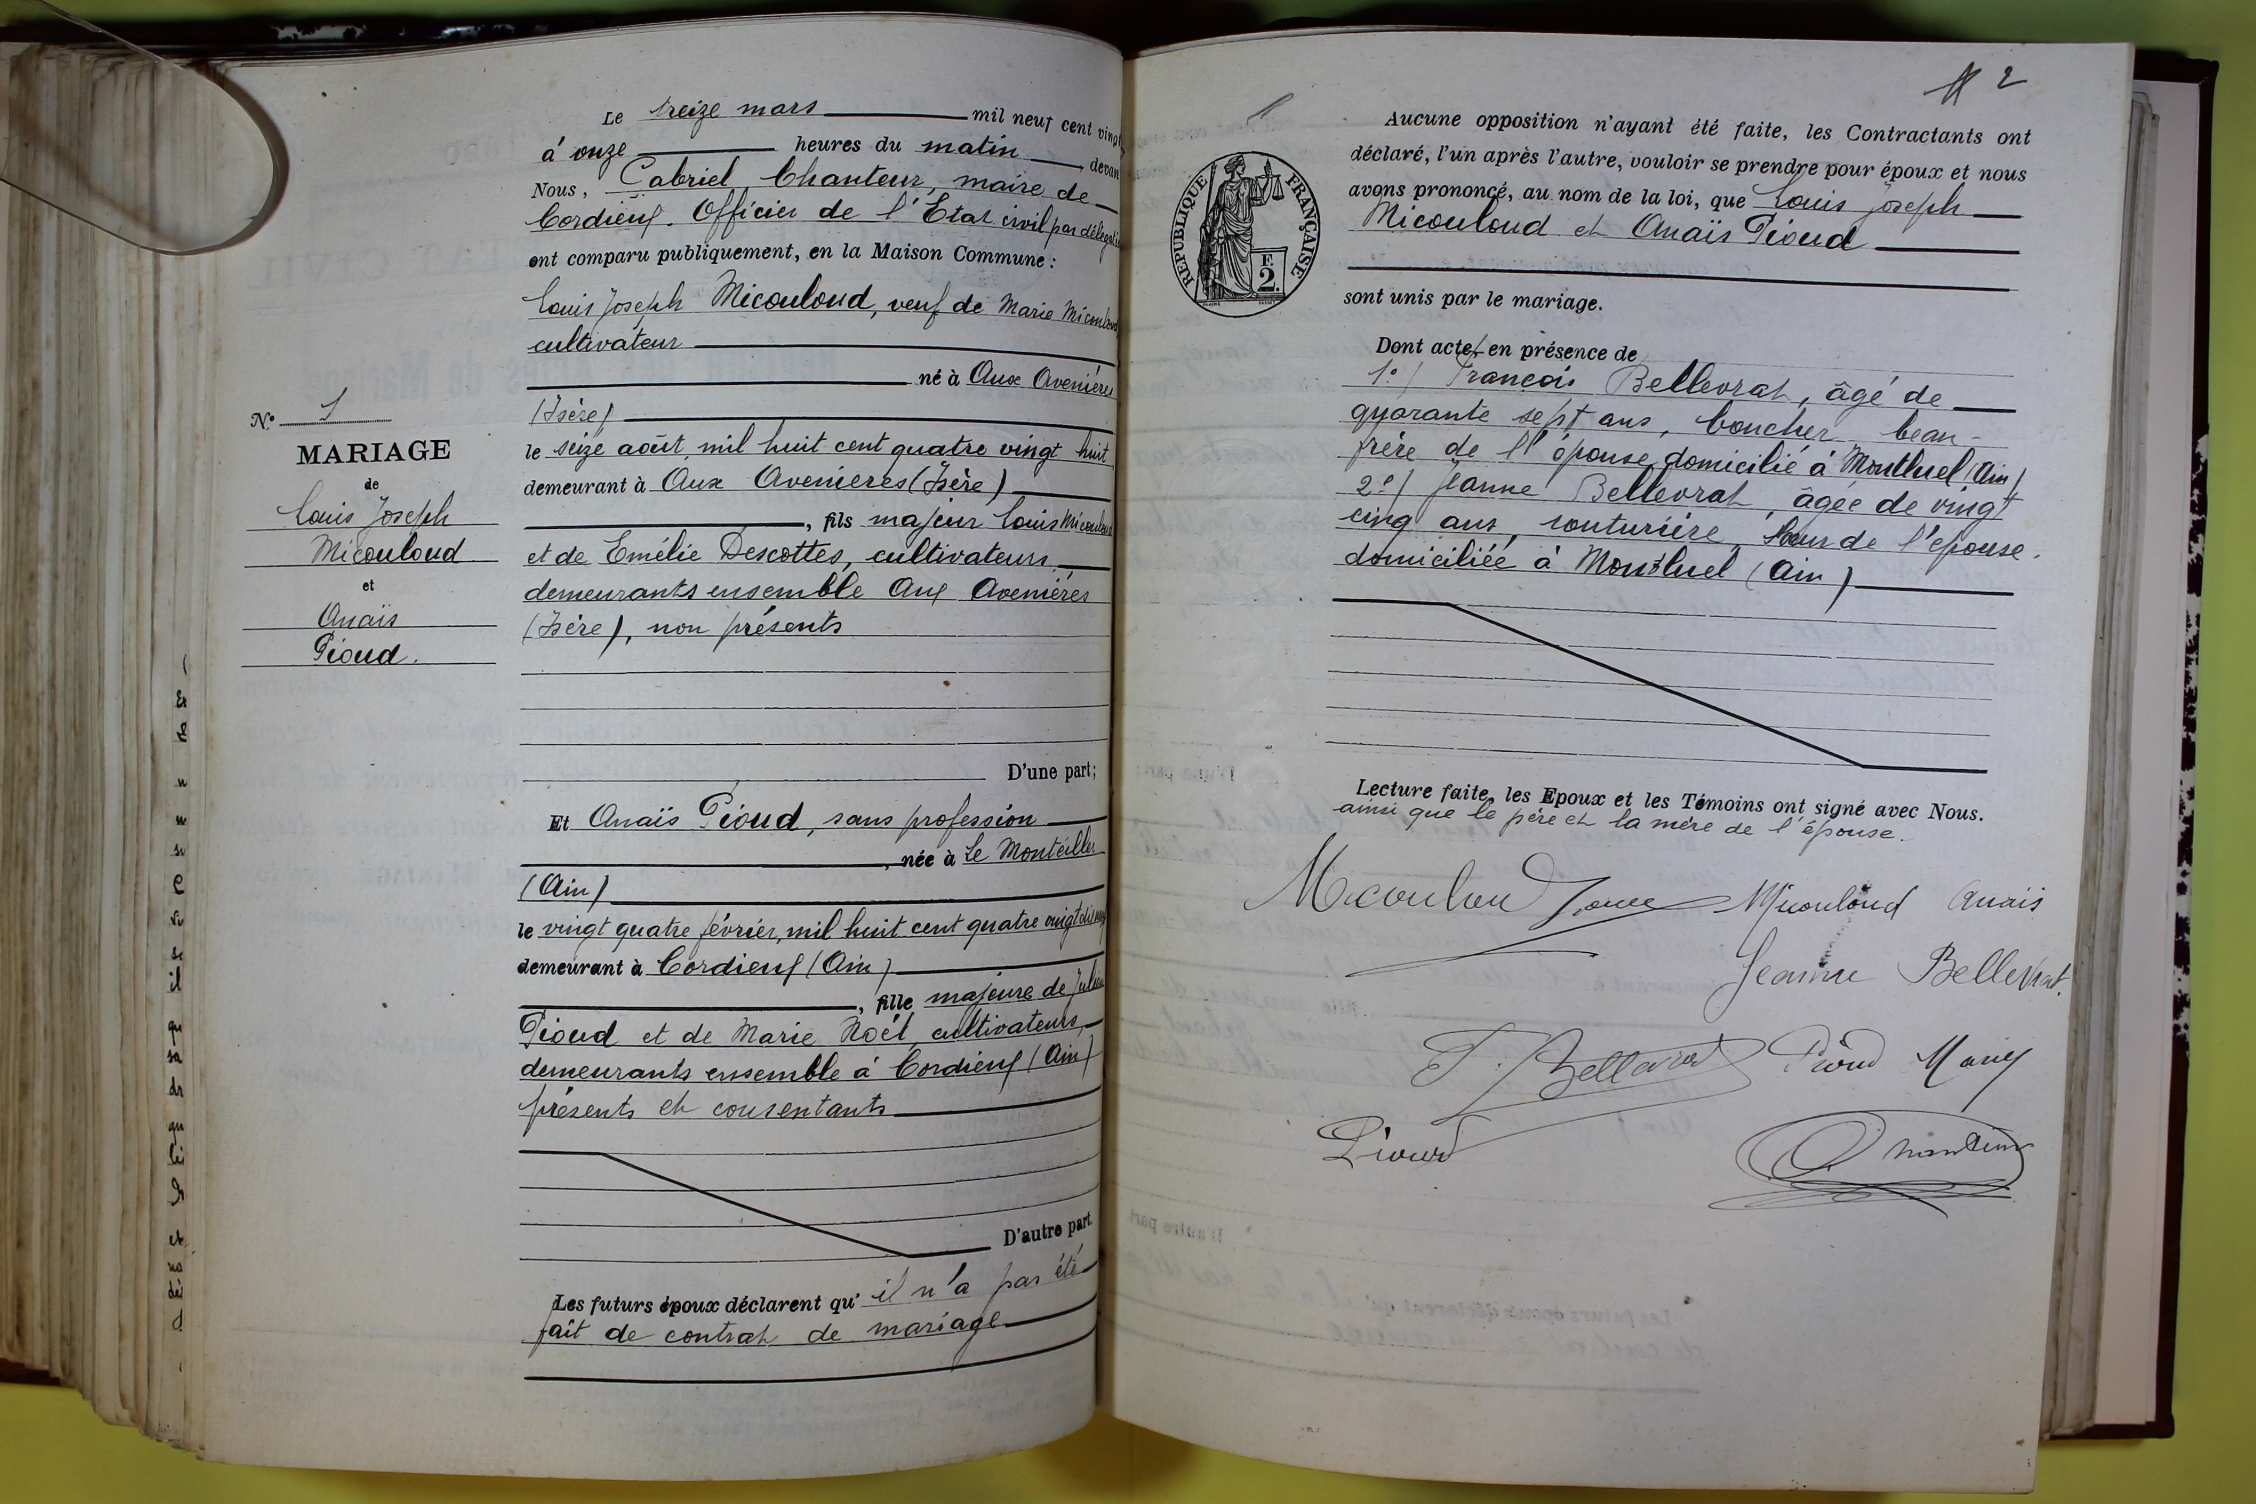 N° 1
MARIAGE
de
Louis Joseph
Micouloud
et
Anaïs
Pioud.
Le treize mars mil neuf cent vingt
à onze heures du matin, devan
Nous, Gabriel Chanteur, maire de
Cordieux. Officier de l'Etat civil par délégati
ont comparu publiquement, en la Maison Commune :
Louis Joseph Micouloud, veuf de Marie Micouloud
cultivateur
né à Aux Avenières
(Isère)
le seize août, mil huit cent quatre vingt huit
demeurant à Aux Avenières (Isère)
, fils majeur Louis Micouloud
et de Emélie Descottes, cultivateurs,
demeurants ensemble Aux Avenières
(Isère), non présents
D'une part;
Et Anaïs Pioud, sans profession
, née à Le Montellier
(Ain)
le vingt quatre février, mil huit cent quatre vingt dix neuf
demeurant à Cordieux (Ain)
, fille majeure de Julien
Pioud et de Marie Noël, cultivateurs,
demeurants ensemble à Cordieux (Ain)
présents et consentants
D'autre part.
Les futurs époux déclarent qu' il n'a pas été
fait de contrat de mariage
2
Aucune opposition n'ayant été faite, les Contractants ont
déclaré, l'un après l'autre, vouloir se prendre pour époux et nous
avons prononcé, au nom de la loi, que Louis Joseph
Micouloud et Anaïs Pioud
sont unis par le mariage.
RÉPUBLIQUE FRANÇAISE
E
2.
Dont acte, en présence de
1°/ François Bellevrat, âgé de
quarante sept ans, boucher, beau-
frère de l'épouse, domicilié à Montluel (Ain)
2°/ Jeanne Bellevrat, âgée de vingt
cinq ans, couturière, sœur de l'épouse.
domiciliée à Montluel (Ain)
Lecture faite, les Epoux et les Témoins ont signé avec Nous.
ainsi que le père et la mère de l'épouse.
Micouloud Micouloud Anais
Jeanne Bellevrat.
F. Bellevrat Pioud Marie
Pioud Chanteur